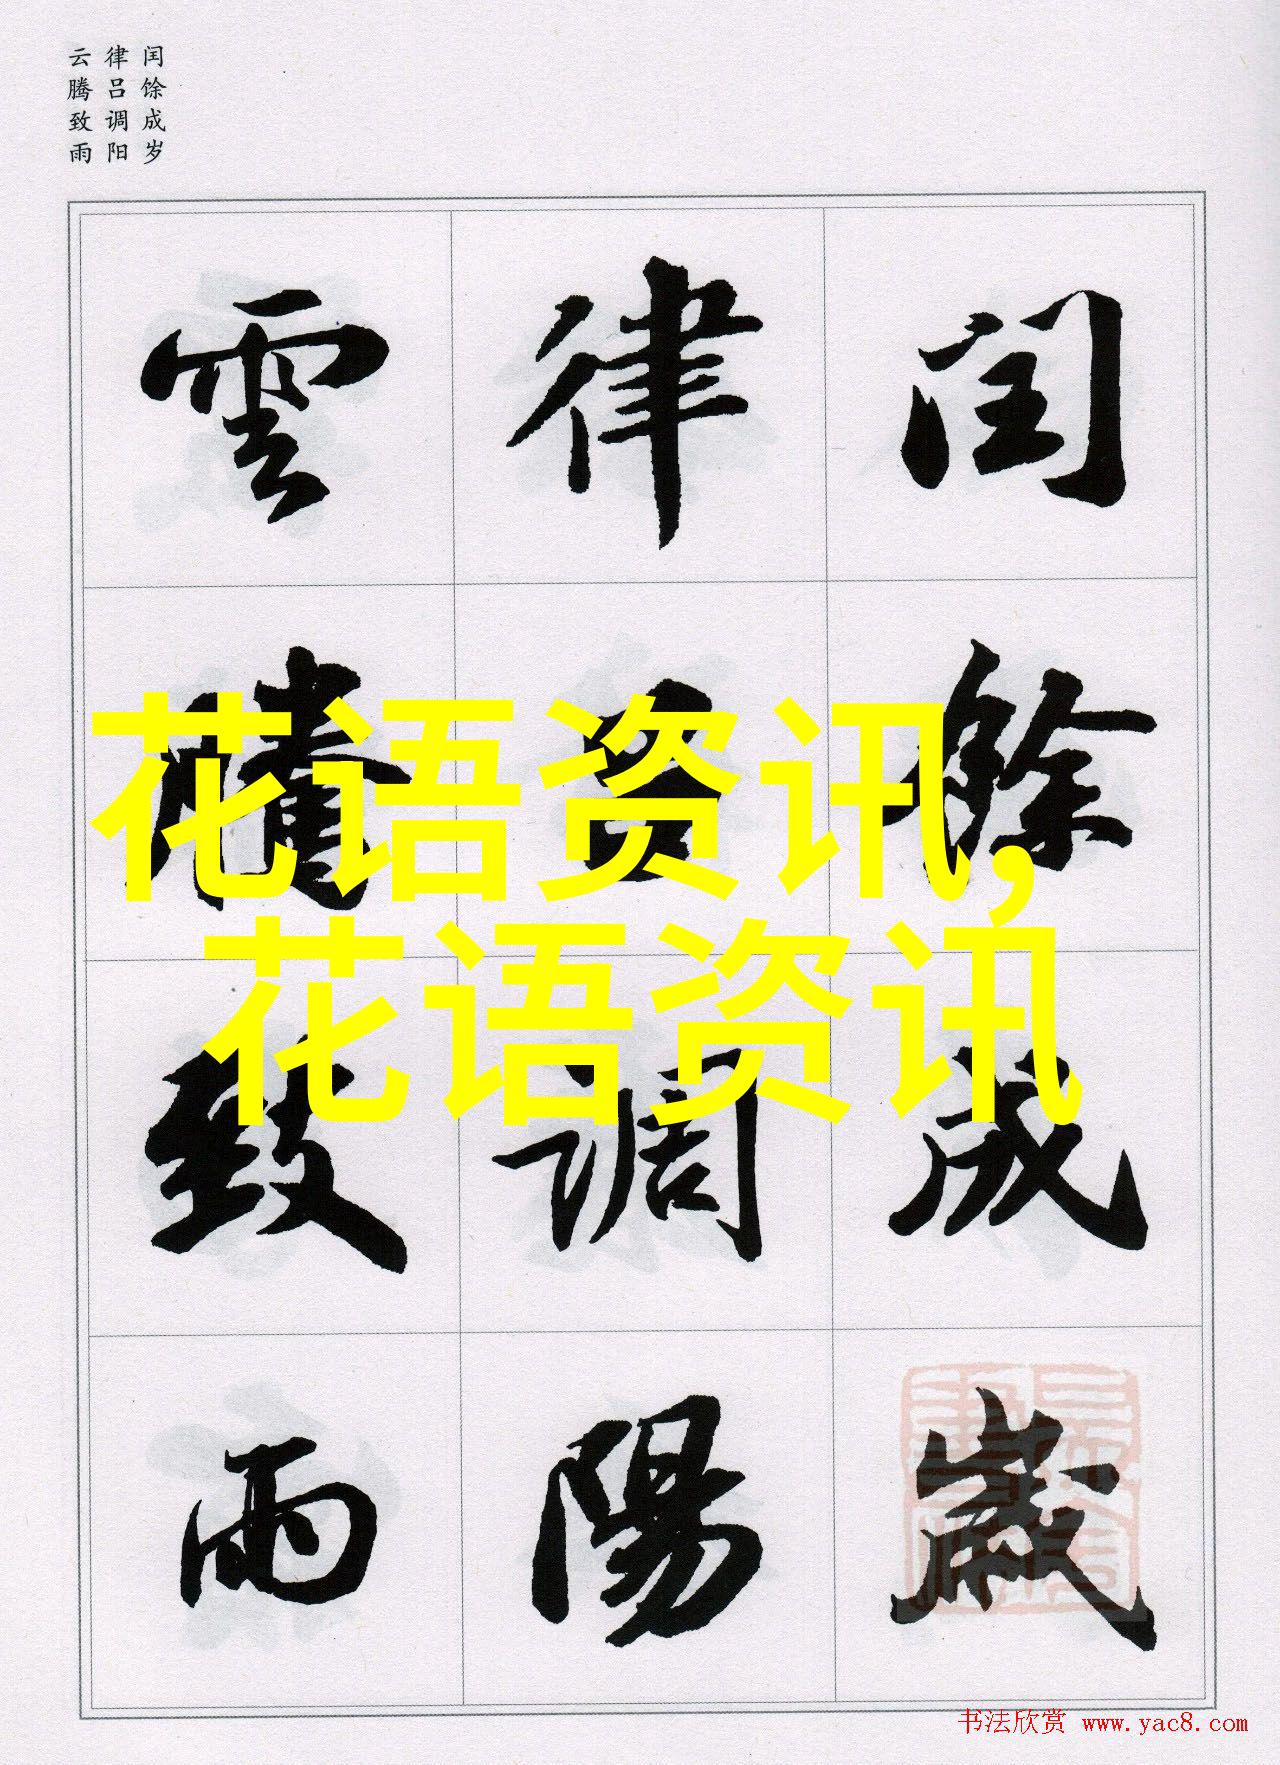 闰馀成岁
律吕调阳
云腾致雨
閏餘成歲
律吕調陽
雲騰致雨
花语资讯,
花语资讯
书法欣赏 www.yac8.com